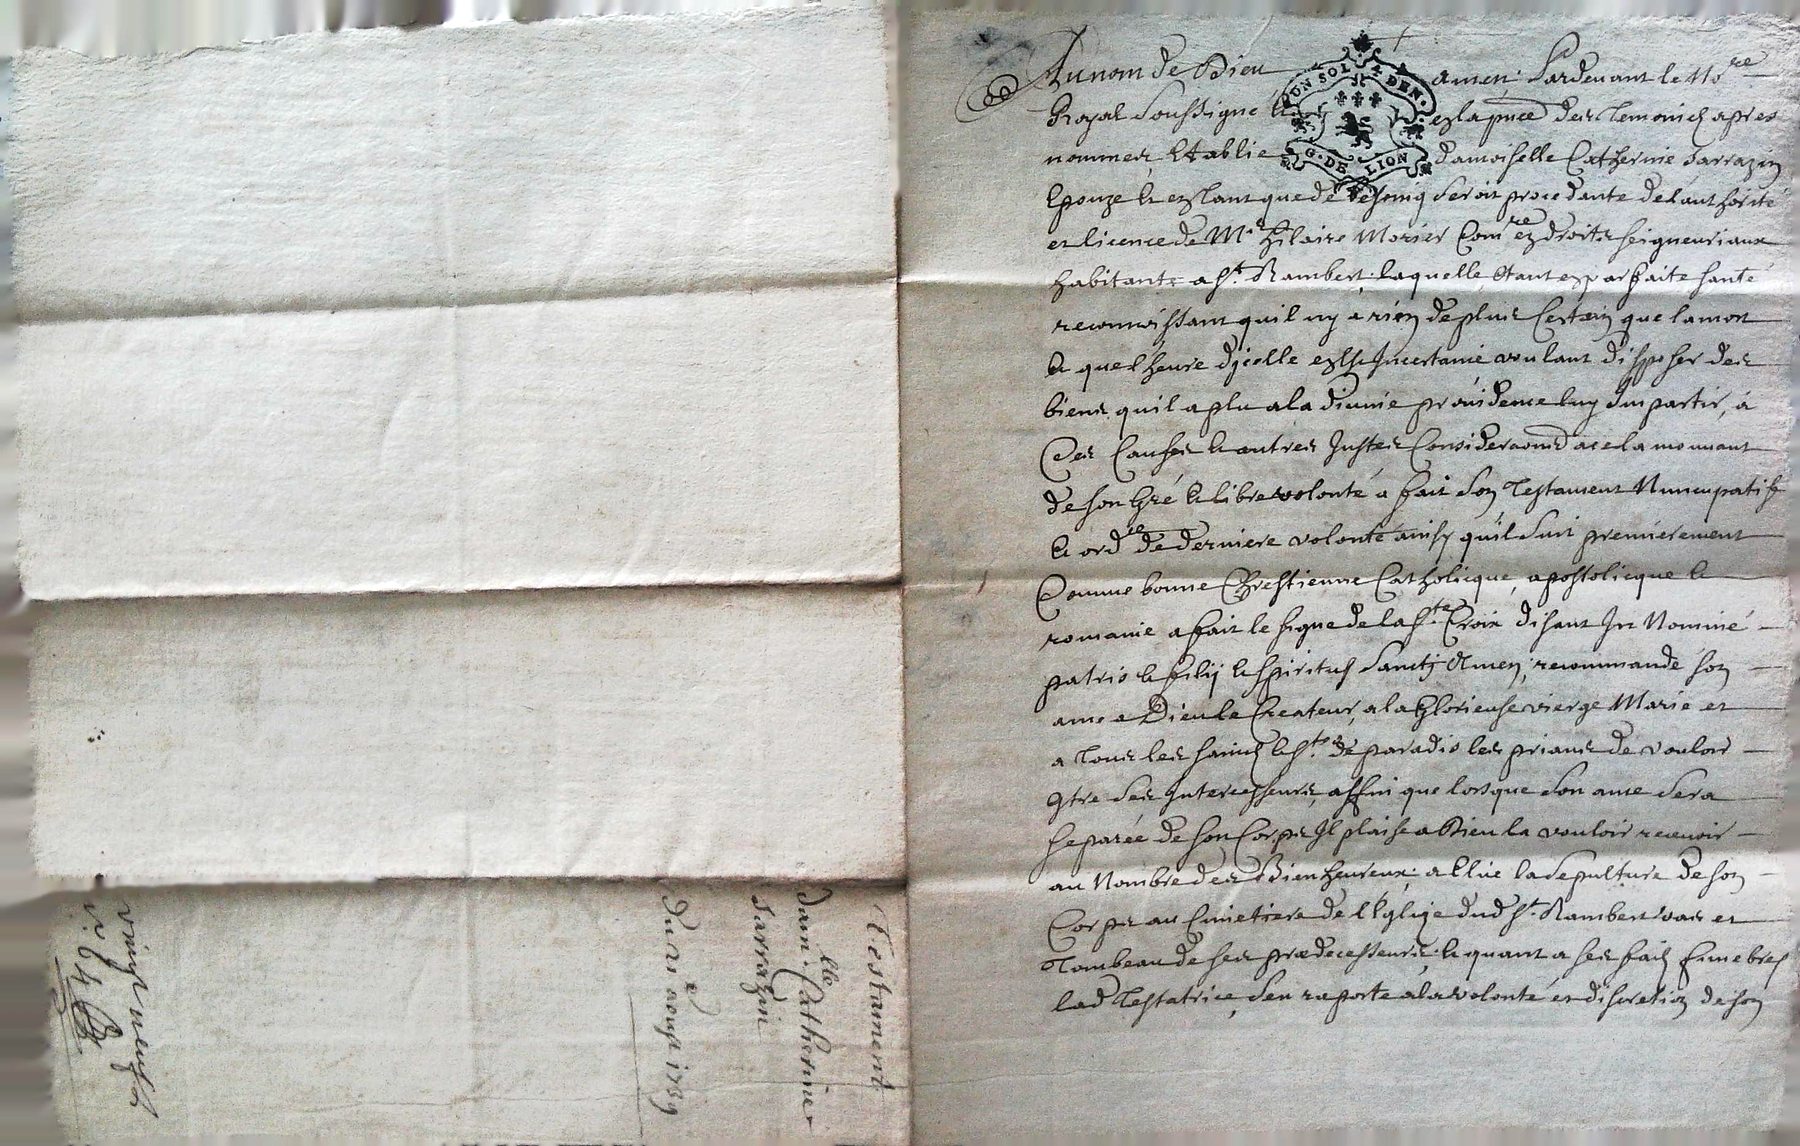 Testament
dam.lle Catherine
Sarrazin
du 21e aoust 1739
vingt neufs
Au nom de Dieu amen Pardevant le No.re
UN SOL 4 DEN.
G. DE LION
Royal Soussigné & en la pnce des Temoins apres
nommez Etablie damoiselle Catherine Sarrazin
Epouze & en tant que de besoing seroit procedante de l'authorité
et licence de Mr. hilaire Morier Com.re en droits seigneuriaux
habitants a St. Rambert, laquelle Etant en parfaite santé
reconnoissant quil ny a rien de plus Certain que la mort
& que l'heure d'jcelle est Incertaine voulant disposer des
biens quil a plu a la divine providence luy Impartir, a
Ces Causes & autres Justes Consideraons a ce la mouvant
de son Gré & libre volonté a fait son Testament Nuncupatif
& ord.ce de derniere volonté ainsy quil suit premierement
Comme bonne Chrestienne Catholicque, apostolicque &
romaine a fait le signe de la S.te Croix disant In Nominé
patris & filij & spiritus sanctj Amen, recommandé son
ame a Dieu le Createur, a la Glorieuse vierge Marie et
a Tous les saints & S.tes de paradis les priant de vouloir
Etre ses Intercesseurs, affin que lorsque son ame sera
separée de son Corps Il plaise a Dieu la vouloir recevoir
au Nombre des Bienheureux, a Elue la sepulture de son
Corps au Cimetiere de l'Eglize dud St. Rambert vas et
Tombeau de ses prædecesseurs, & quant a ses frais funebres
lad Testatrice, s'en raporte a la volonté et discretion de son